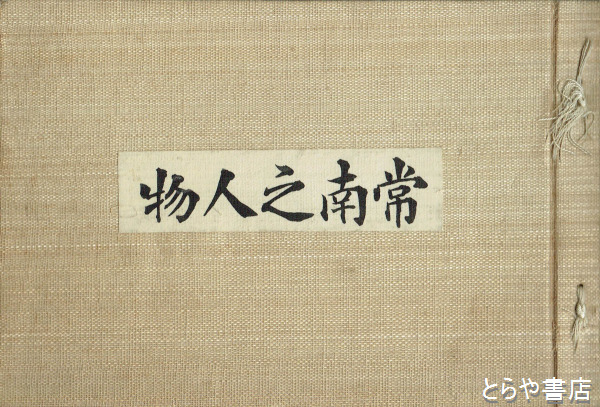 常南之人物
とらや書店